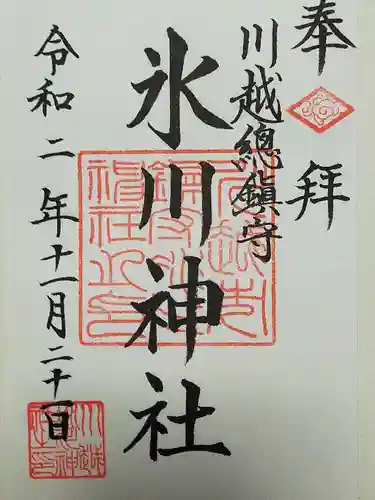 奉拝
川越總鎮守
氷川神社
令和二年十一月二十一日